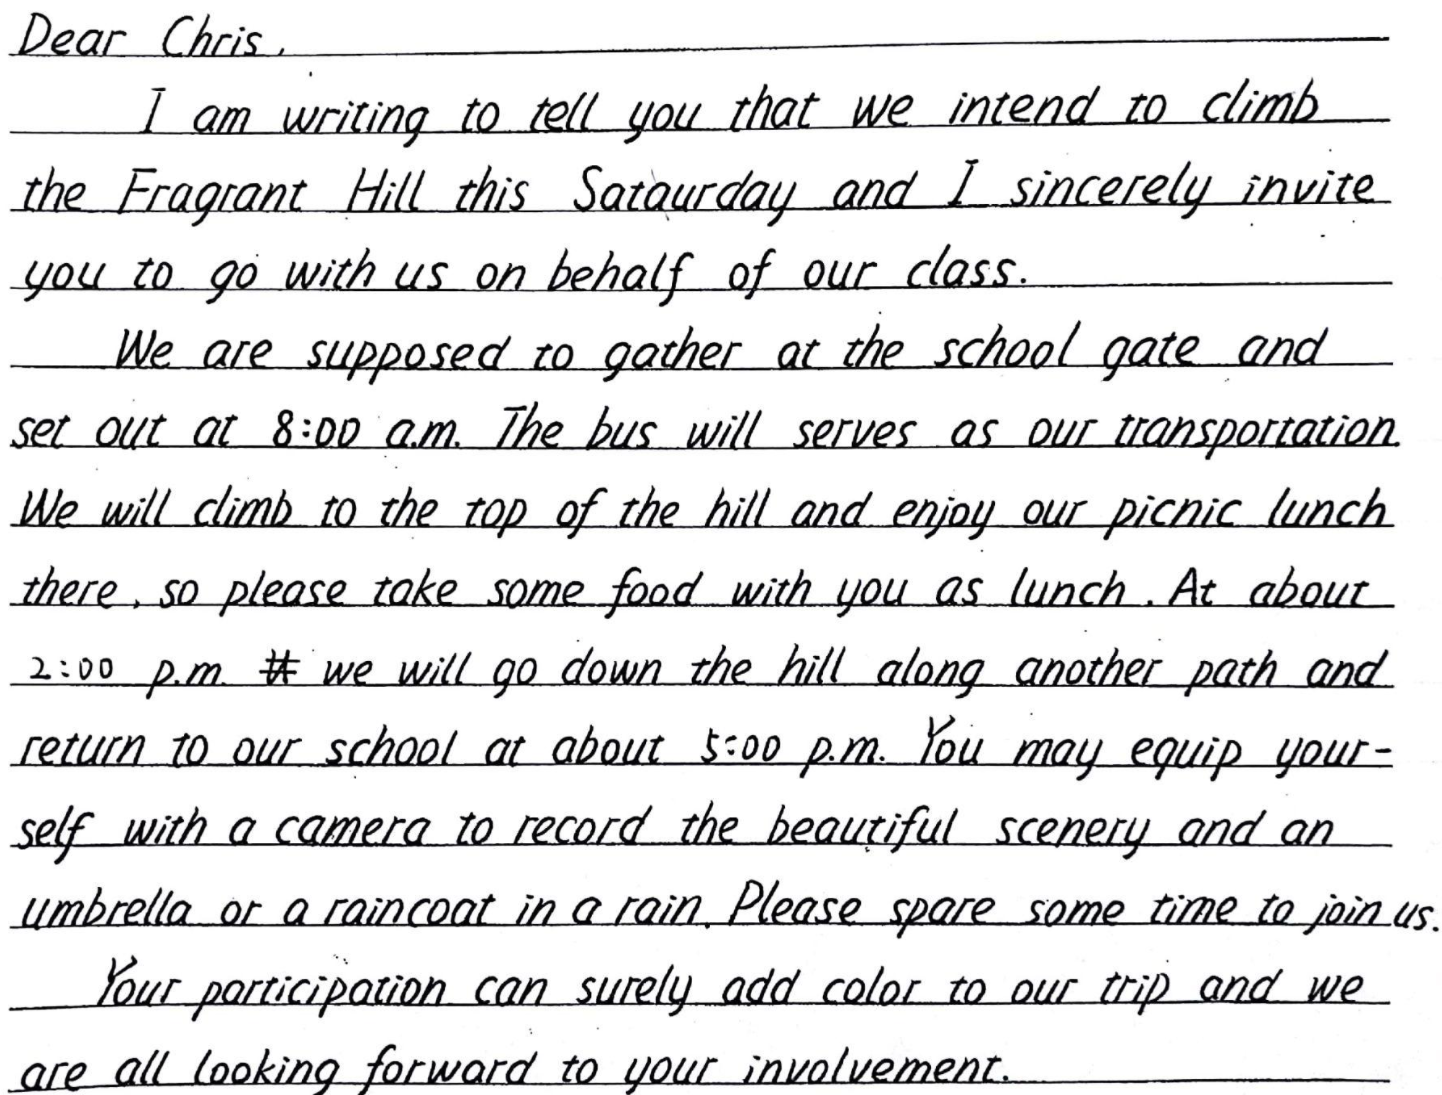 Dear Chris,
I am writing to tell you that we intend to climb
the Fragrant Hill this Sataurday and I sincerely invite
you to go with us on behalf of our class.
We are supposed to gather at the school gate and
set out at 8:00 a.m. The bus will serves as our transportation.
We will climb to the top of the hill and enjoy our picnic lunch
there, so please take some food with you as lunch. At about
2:00 p.m. we will go down the hill along another path and
return to our school at about 5:00 p.m. You may equip your-
self with a camera to record the beautiful scenery and an
umbrella or a raincoat in a rain. Please spare some time to join us.
Your participation can surely add color to our trip and we
are all looking forward to your involvement.